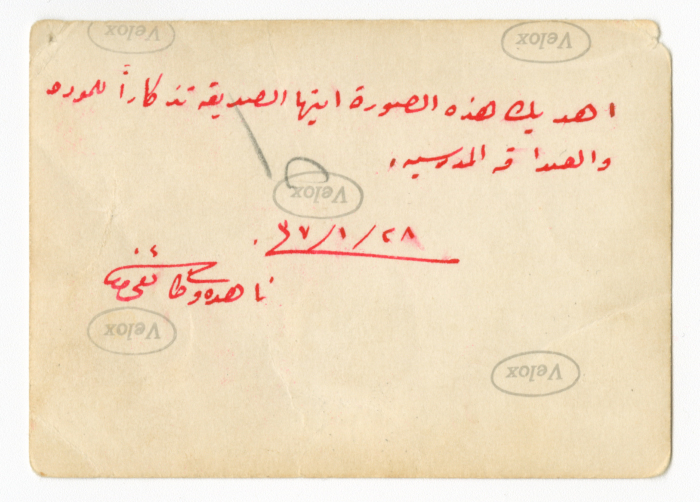 Velox
Velox
اهديك هذه الصورة ايتها الصديقه تذكاراً للموده
والصداقه المدرسيه.
Velox
٢٨/١/٣٧
ناهده
Velox
Velox